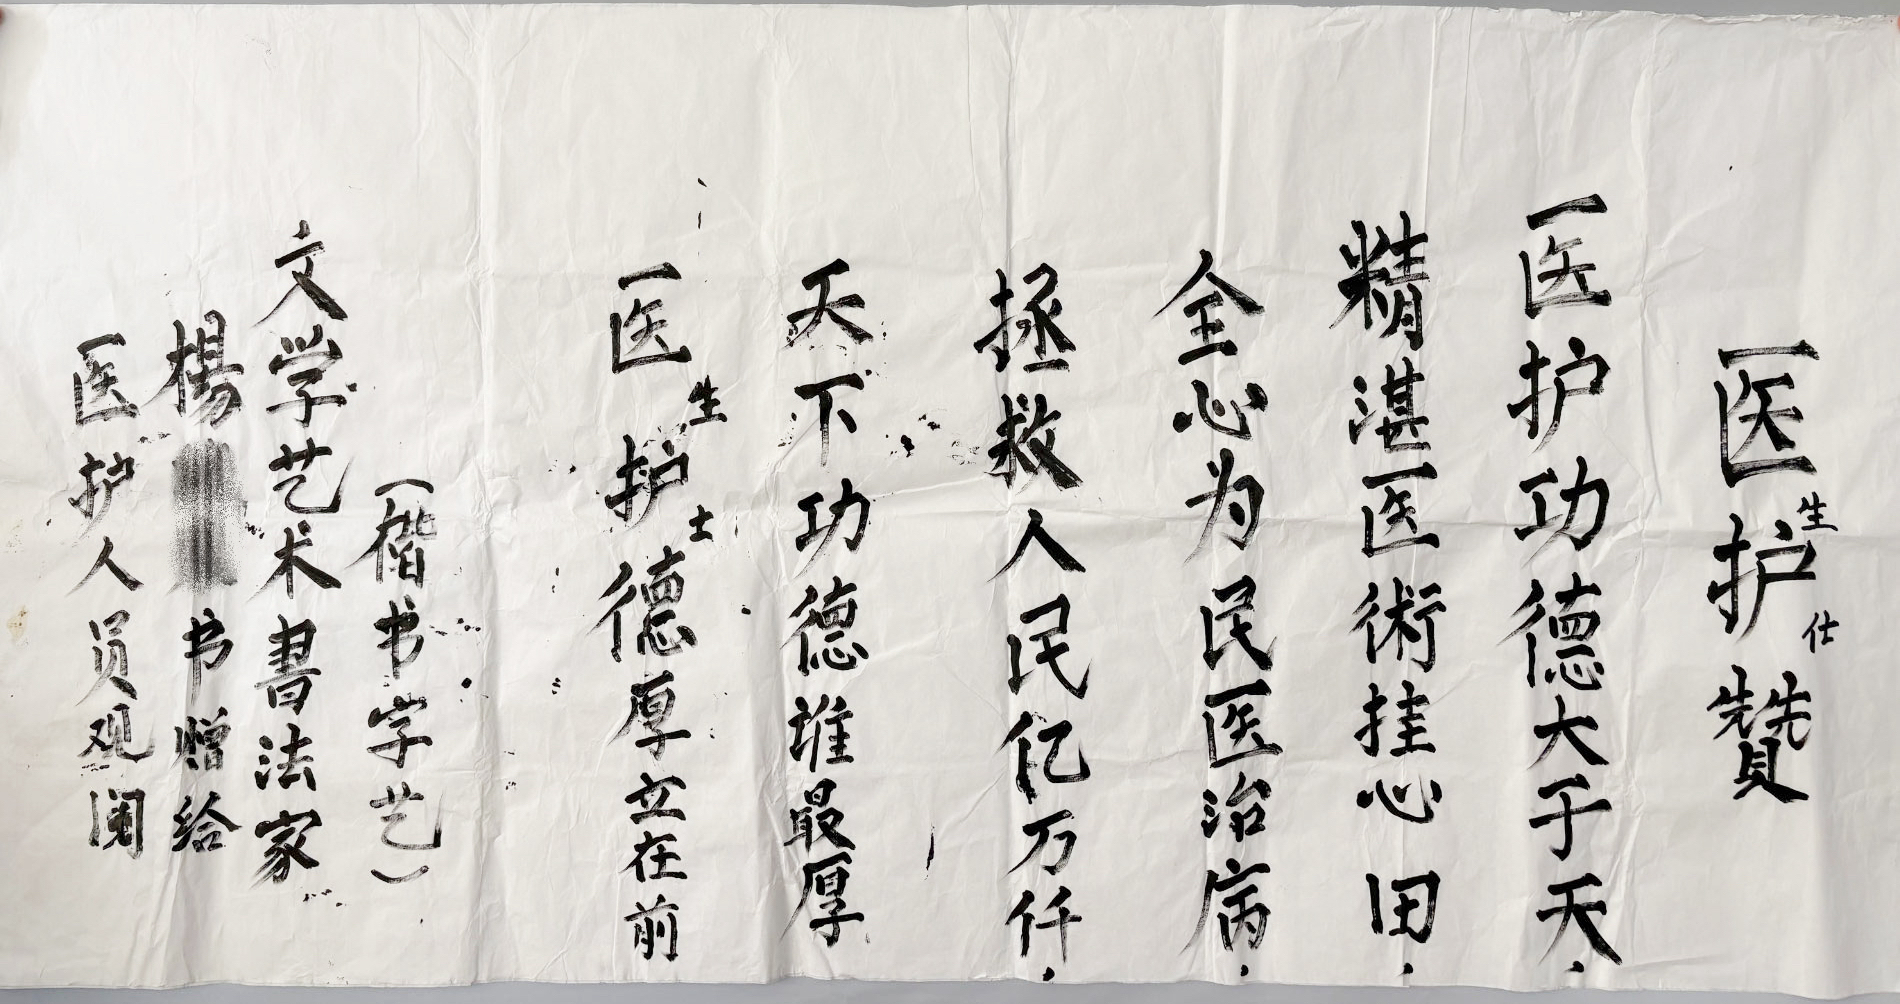 医生护仕贊
医护功德大于天.
精湛医術挂心田.
全心为民医治病.
拯救人民亿万仟.
天下功德谁最厚
医生护士德厚立在前
(楷书字艺)
文学艺术書法家
楊 书赠给
医护人员观阅